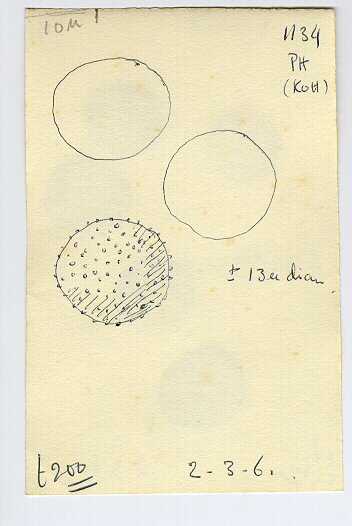 10µ
1134
PH
(KOH)
± 13µ diam.
t200
2-3-6.